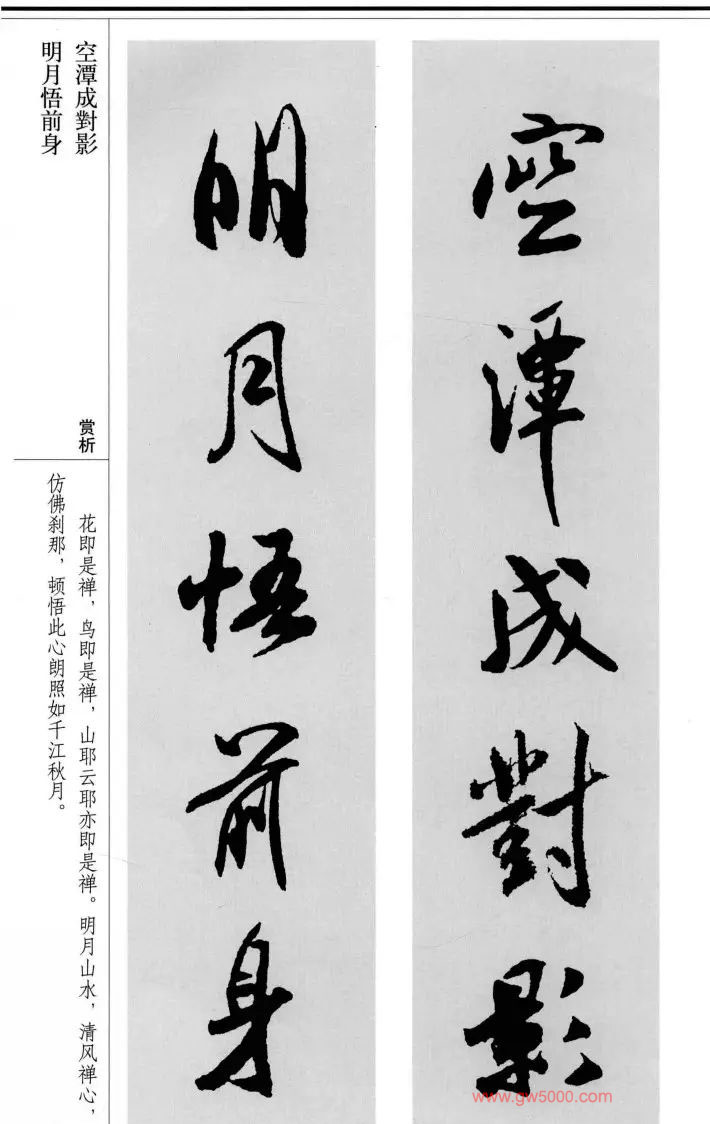 空潭成對影
明月悟前身
空潭成對影
明月悟前身
赏析
花即是禅，鸟即是禅，山耶云耶亦即是禅。明月山水，清风禅心，
仿佛刹那，顿悟此心朗照如千江秋月。
www.gw5000.com